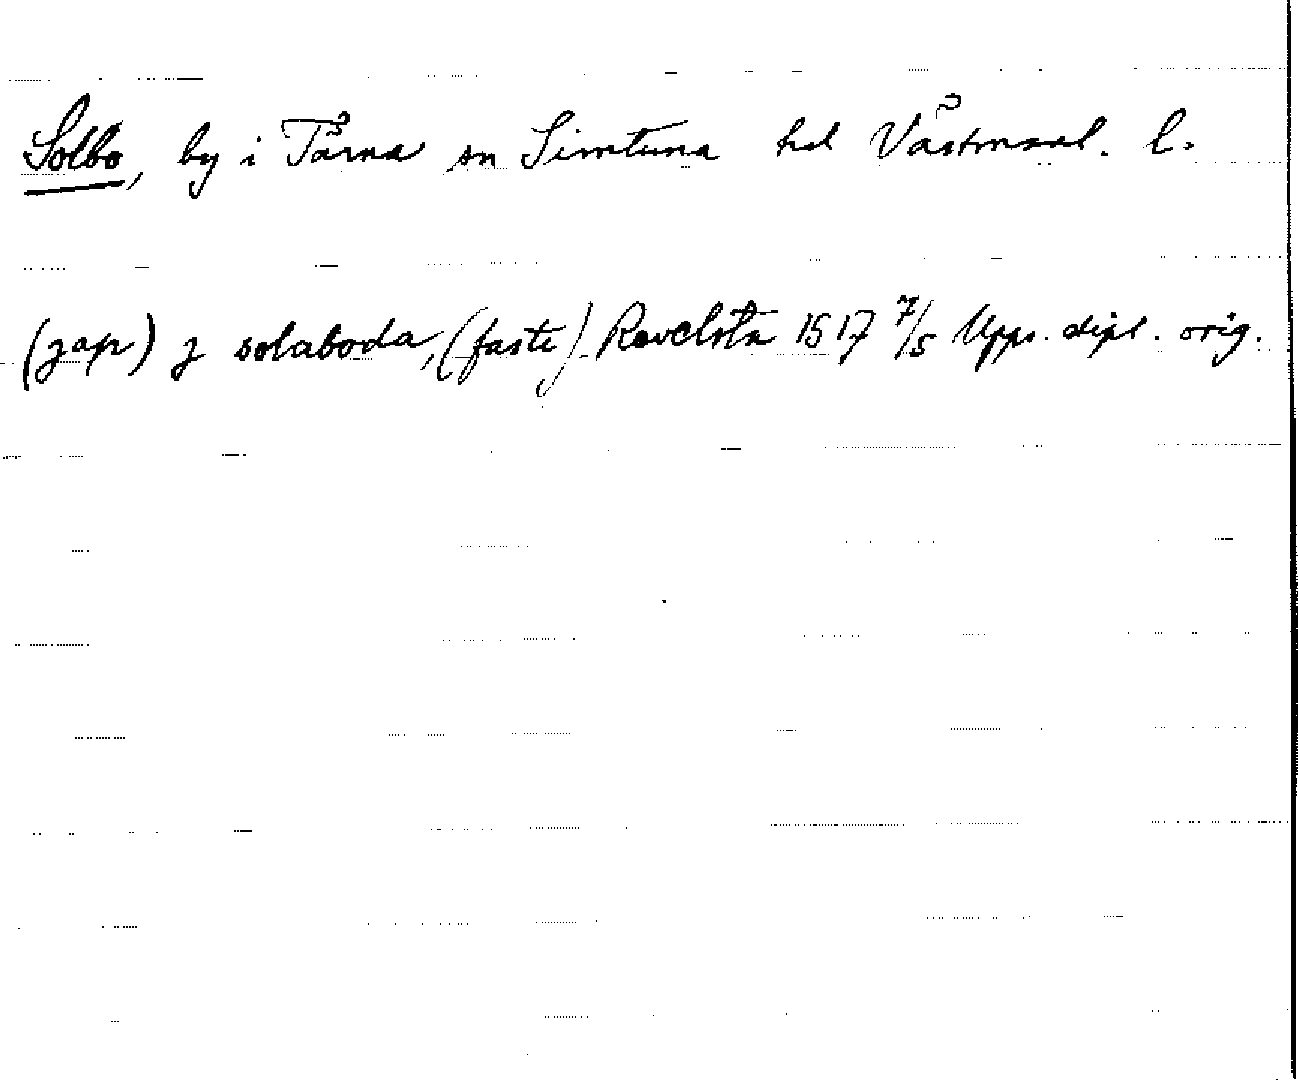 Solbo, by i Tärna sn Simtuna hd Västmanl. l.
(jap) j solaboda, (faste) Ravelsta 1517 7/5 Upps. dipl. orig.